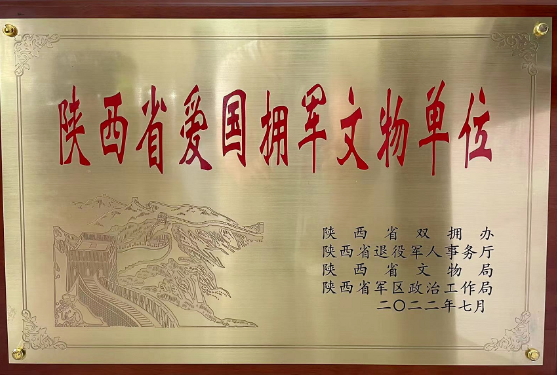 陕西省爱国拥军文物单位
陕西省双拥办
陕西省退役军人事务厅
陕西省文物局
陕西省军区政治工作局
二〇二二年七月